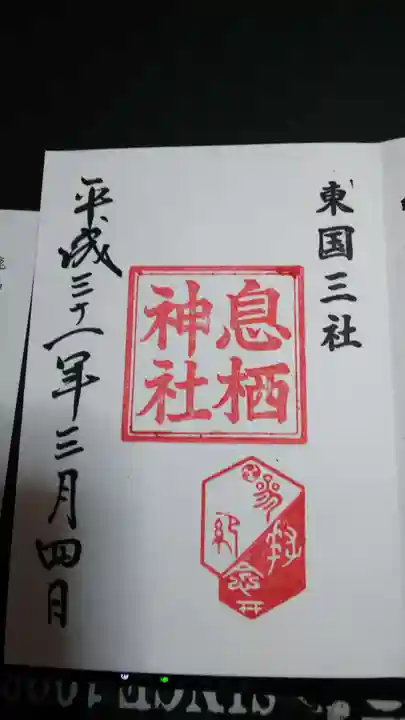 東国三社
息栖
神社
参拝
記念
平成三十一年三月四日